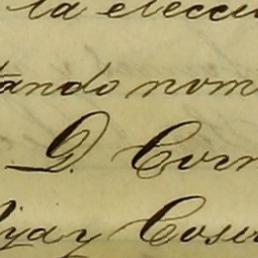 la elecci
tando nom
D. Corn
yay Cose